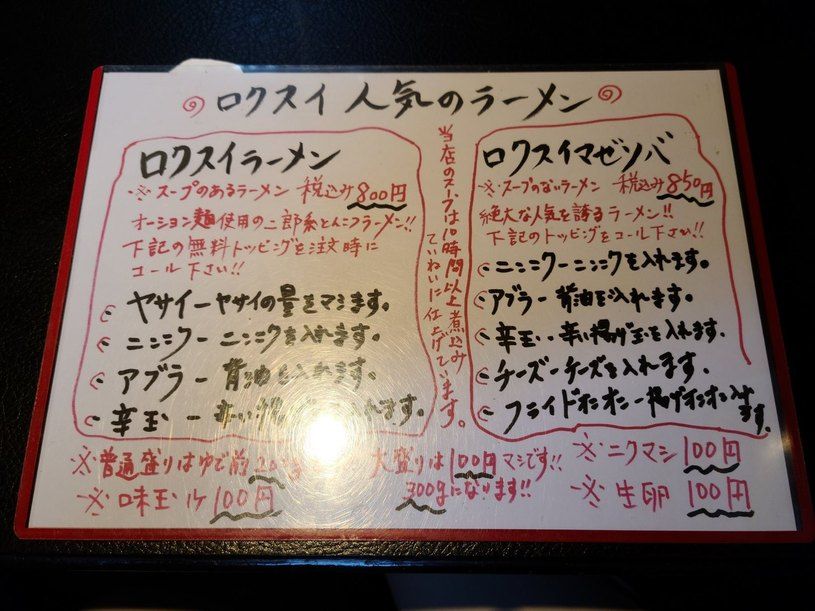 ロクスイ人気のラーメン
ロクスイラーメン
※スープのあるラーメン 税込み800円
オーション麺使用の二郎系とんこつラーメン!!
下記の無料トッピングを注文時に
コール下さい!!
ヤサイーヤサイの量をマシます。
ニンニクーニンニクを入れます。
アブラー背油を入れます。
辛玉ー辛い揚げ 入れます。
当店のスープは10時間以上煮込み
ていねいに仕上げています。
ロクスイマゼソバ
※スープのないラーメン 税込み850円
絶大な人気を誇るラーメン!!
下記のトッピングをコール下さい!!
ニンニクーニンニクを入れます。
アブラー背油を入れます。
辛玉・・辛い揚げ玉を入れます。
チーズーチーズを入れます。
フライドオニオンー揚げオニオン入れ
ます。
※普通盛りはゆで前20
大盛りは100円マシです!!
300gになります!!
※ニクマシ100円
※味玉1ヶ100円
※生卵 100円